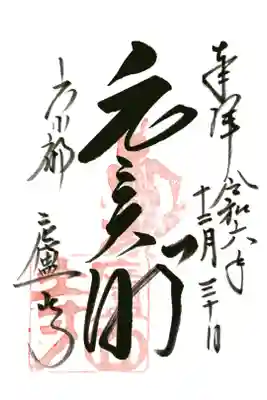 奉拝 令和六年
十二月三十日
元三大師
京都
廬山寺